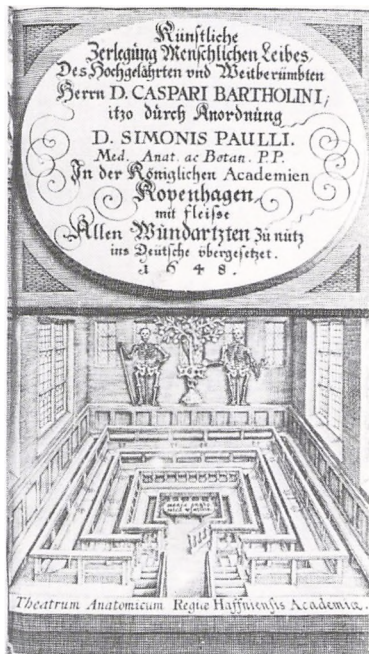 Künstliche
Zerlegung Menschlichen Leibes,
Des Hochgelährten vnd Weitberümbten
Herrn D. CASPARI BARTHOLINI;
itzo dürch Anordnüng
D. SIMONIS PAULLI.
Med. Anat. ac Botan. P.P.
In der Königlichen Academien
Kopenhagen,
mit fleisse
Allen Wündartzten Zu nütz
ins Deütsche vbergesetzet.
1648.
Theatrum Anatomicum Regiæ Haffniensis Academiæ.